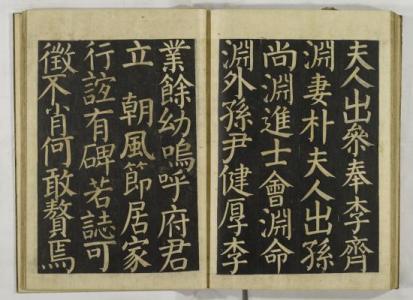 夫人出參奉李齊
淵妻朴夫人出孫
尚淵進士會淵命
淵外孫尹健厚李
業餘幼嗚呼府君
立朝風節居家
行誼有碑若誌可
徵不肖何敢贅焉